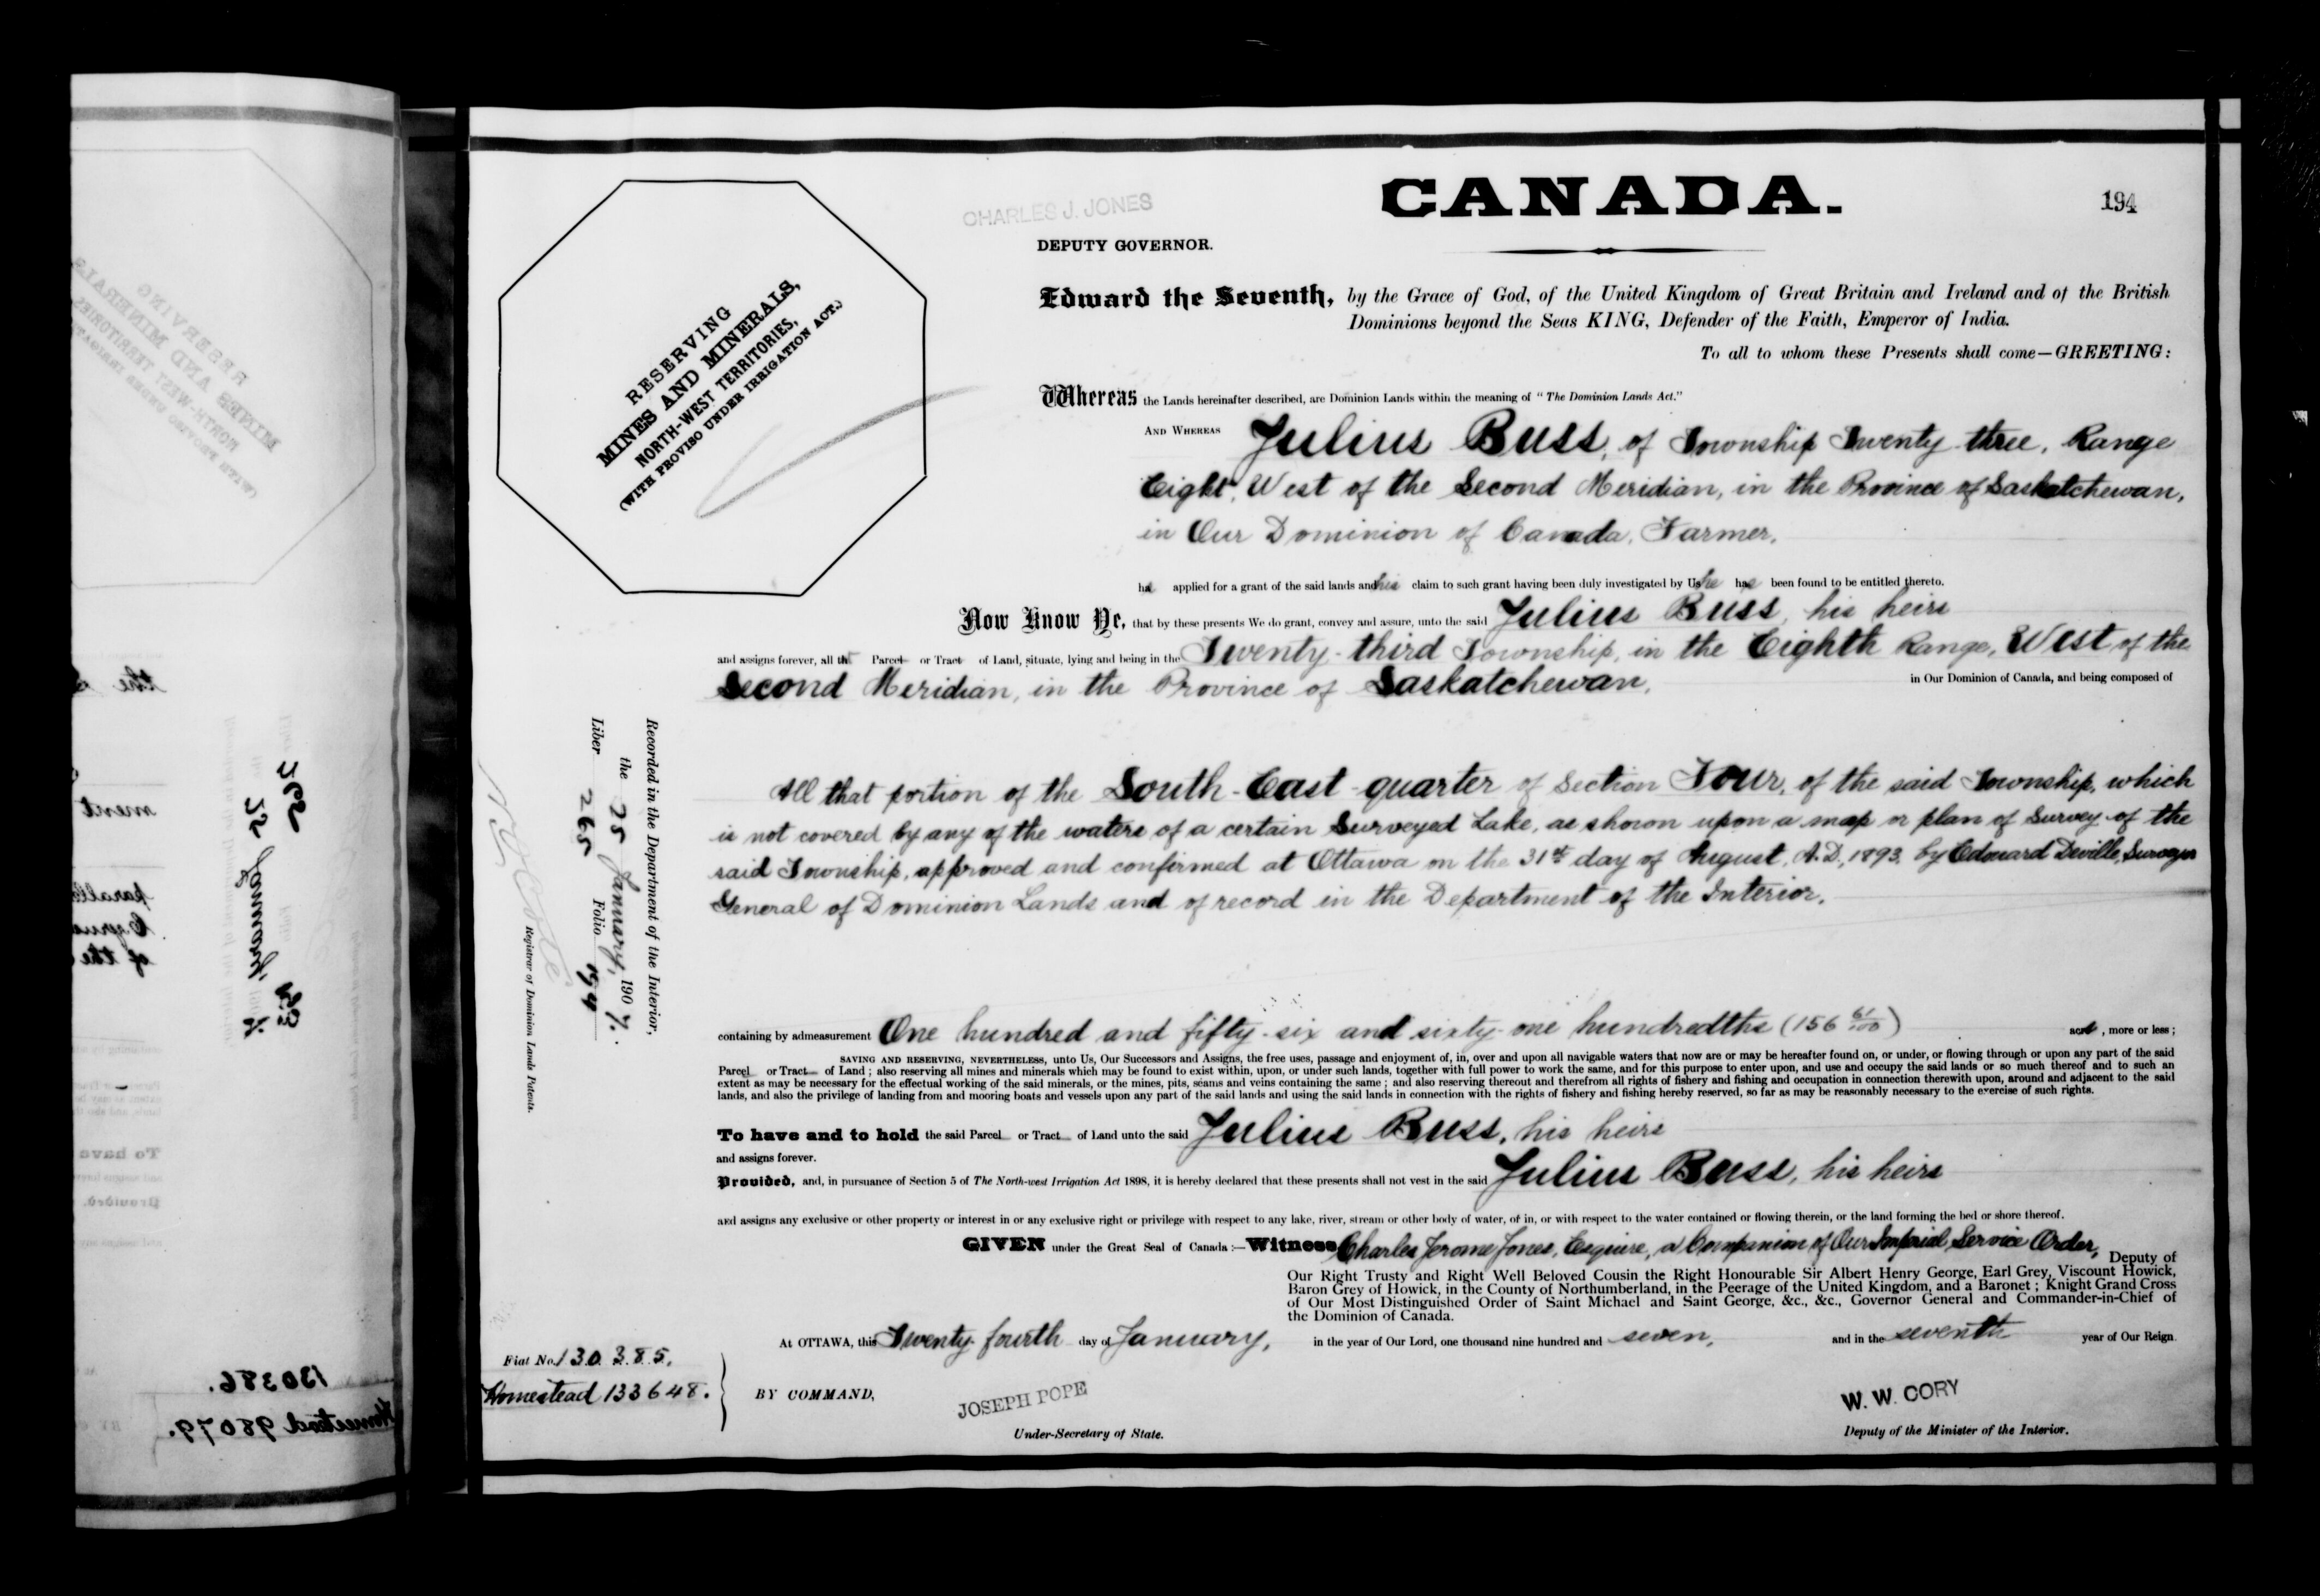 CANADA.
194
CHARLES J. JONES
DEPUTY GOVERNOR.
RESERVING
MINES AND MINERALS,
NORTH-WEST TERRITORIES,
(WITH PROVISO UNDER IRRIGATION ACT.)
Edward the Seventh, by the Grace of God, of the United Kingdom of Great Britain and Ireland and of the British
Dominions beyond the Seas KING, Defender of the Faith, Emperor of India.
To all to whom these Presents shall come—GREETING:
Whereas the Lands hereinafter described, are Dominion Lands within the meaning of "The Dominion Lands Act."
AND WHEREAS Julius Buss, of Township Twenty-three, Range
Eight, West of the Second Meridian, in the Province of Saskatchewan,
in Our Dominion of Canada, Farmer,
has applied for a grant of the said lands and his claim to such grant having been duly investigated by Us he has been found to be entitled thereto.
Now Know Ye, that by these presents We do grant, convey and assure, unto the said Julius Buss, his heirs
and assigns forever, all that Parcel or Tract of Land, situate, lying and being in the Twenty-third Township, in the Eighth Range, West of the
Second Meridian, in the Province of Saskatchewan, in Our Dominion of Canada, and being composed of
All that portion of the South-East quarter of Section Four, of the said Township, which
is not covered by any of the waters of a certain Surveyed Lake, as shown upon a map or plan of Survey of the
said Township, approved and confirmed at Ottawa on the 31st day of August, A.D., 1893, by Edouard Deville, Surveyor
General of Dominion Lands and of record in the Department of the Interior,
containing by admeasurement One hundred and fifty-six and sixty-one hundredths (156 61/100) acres, more or less;
SAVING AND RESERVING, NEVERTHELESS, unto Us, Our Successors and Assigns, the free uses, passage and enjoyment of, in, over and upon all navigable waters that now are or may be hereafter found on, or under, or flowing through or upon any part of the said
Parcel or Tract of Land; also reserving all mines and minerals which may be found to exist within, upon, or under such lands, together with full power to work the same, and for this purpose to enter upon, and use and occupy the said lands or so much thereof and to such an
extent as may be necessary for the effectual working of the said minerals, or the mines, pits, seams and veins containing the same; and also reserving thereout and therefrom all rights of fishery and fishing and occupation in connection therewith upon, around and adjacent to the said
lands, and also the privilege of landing from and mooring boats and vessels upon any part of the said lands and using the said lands in connection with the rights of fishery and fishing hereby reserved, so far as may be reasonably necessary to the exercise of such rights.
To have and to hold the said Parcel or Tract of Land unto the said Julius Buss, his heirs
and assigns forever.
Provided, and, in pursuance of Section 5 of The North-west Irrigation Act 1898, it is hereby declared that these presents shall not vest in the said Julius Buss, his heirs
and assigns any exclusive or other property or interest in or any exclusive right or privilege with respect to any lake, river, stream or other body of water, of in, or with respect to the water contained or flowing therein, or the land forming the bed or shore thereof.
GIVEN under the Great Seal of Canada:—Witness Charles Jerome Jones, Esquire, a Companion of Our Imperial Service Order, Deputy of
Our Right Trusty and Right Well Beloved Cousin the Right Honourable Sir Albert Henry George, Earl Grey, Viscount Howick,
Baron Grey of Howick, in the County of Northumberland, in the Peerage of the United Kingdom, and a Baronet; Knight Grand Cross
of Our Most Distinguished Order of Saint Michael and Saint George, &c., &c., Governor General and Commander-in-Chief of
the Dominion of Canada.
At OTTAWA, this Twenty-fourth day of January, in the year of Our Lord, one thousand nine hundred and seven, and in the seventh year of Our Reign
BY COMMAND,
JOSEPH POPE
Under-Secretary of State.
W. W. CORY
Deputy of the Minister of the Interior.
Fiat No. 130385.
Homestead 133648.
Recorded in the Department of the Interior,
the 25 January, 1907.
Liber 265 Folio 194
Registrar of Dominion Lands Patents.
130386.
Homestead 98079.